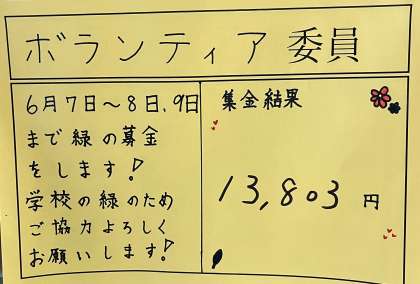 ボランティア委員
6月7日～8日、9日
まで緑の募金
をします!
学校の緑のため
ご協力よろしく
お願いします!
集金結果
13,803円